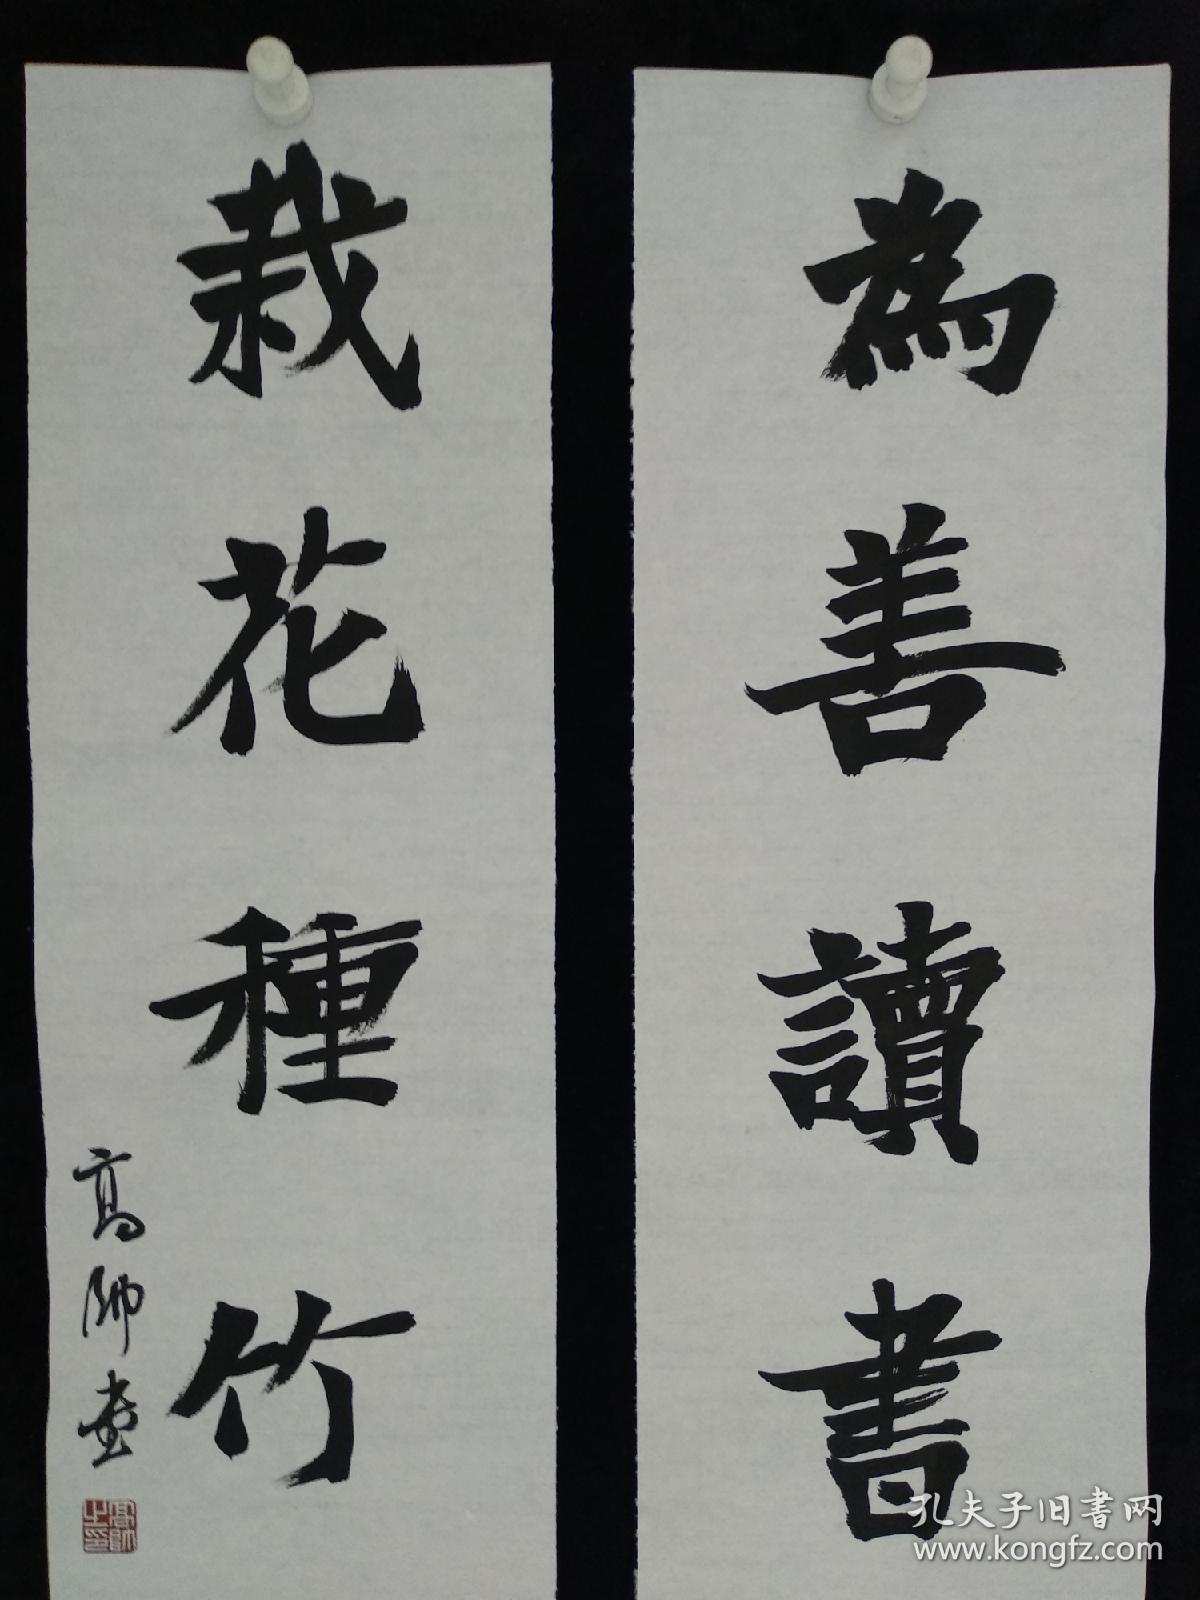 為善讀書
栽花種竹
高帅書
高帅之印
孔夫子旧书网
www.kongfz.com